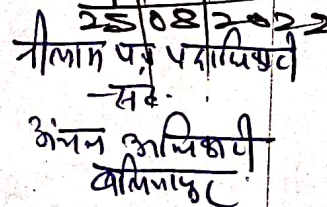 25/08/2022
नीलाम पत्र पदाधिकारी
-सह-
अंचल अधिकारी
बलियापुर